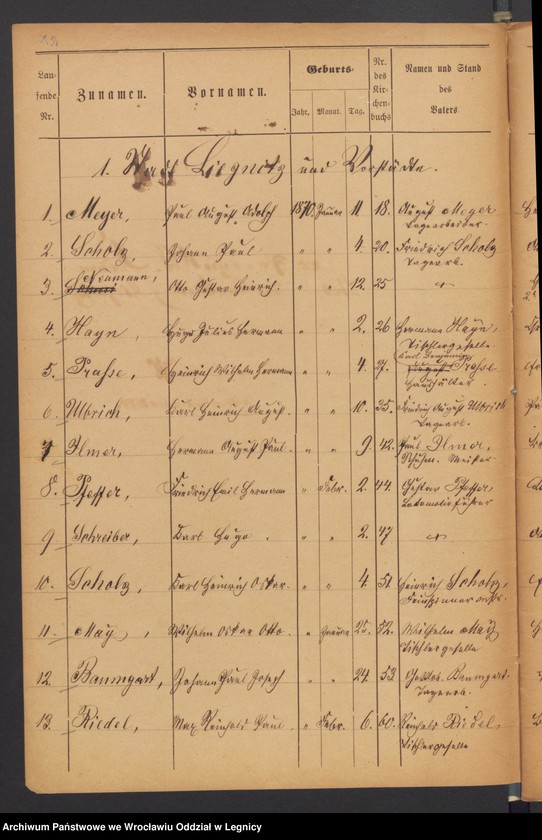 Laufende Nr. Zunamen. Vornamen. Geburts- Jahr. Monat. Tag. Nr. des Kirchenbuchs Namen und Stand des Vaters.
1. Stadt Liegnitz und Vorstädte.
1. Meyer, Paul August Adolf 1870. Januar 11 18. August Meyer
Tagearbeiter.
2. Scholz, Johann Paul " " 4. 20. Friedrich Scholz
Tagearb.
Neumann,
3. Otto Gustav Heinrich. " " 12. 25
4. Hayn, Hugo Julius Hermann " " 2. 26 Hermann Hayn,
Tischlergeselle
Karl Benjamin
5. Prasse, Heinrich Wilhelm Hermann " " 4. 27. August Prasse
Haushälter.
6. Ulbrich, Karl Heinrich August. " " 10. 35. Friedrich August Ulbrich
Tagearb.
7 Ilmer, Hermann August Paul. " " 9. 42. Paul Ilmer,
Schuhm. Meister
8. Pfeffer, Friedrich Emil Hermann " Febr. 2. 44. Gustav Pfeffer,
Lokomotivführer
9 Schreiber, Karl Hugo. " " 2. 47
10. Scholz, Karl Heinrich Oskar. " " 4. 51. Heinrich Scholz,
11. May, Wilhelm Oskar Otto. " Januar 25. 52. Wilhelm May
Tischlergeselle
12. Baumgart, Johann Paul Josef " " 24. 53 Gottlob. Baumgart.
Tagearb.
13. Riedel, Max Reinhold Paul. " Febr. 6. 60. Reinhold Riedel,
Tischlergeselle
Archiwum Państwowe we Wrocławiu Oddział w Legnicy